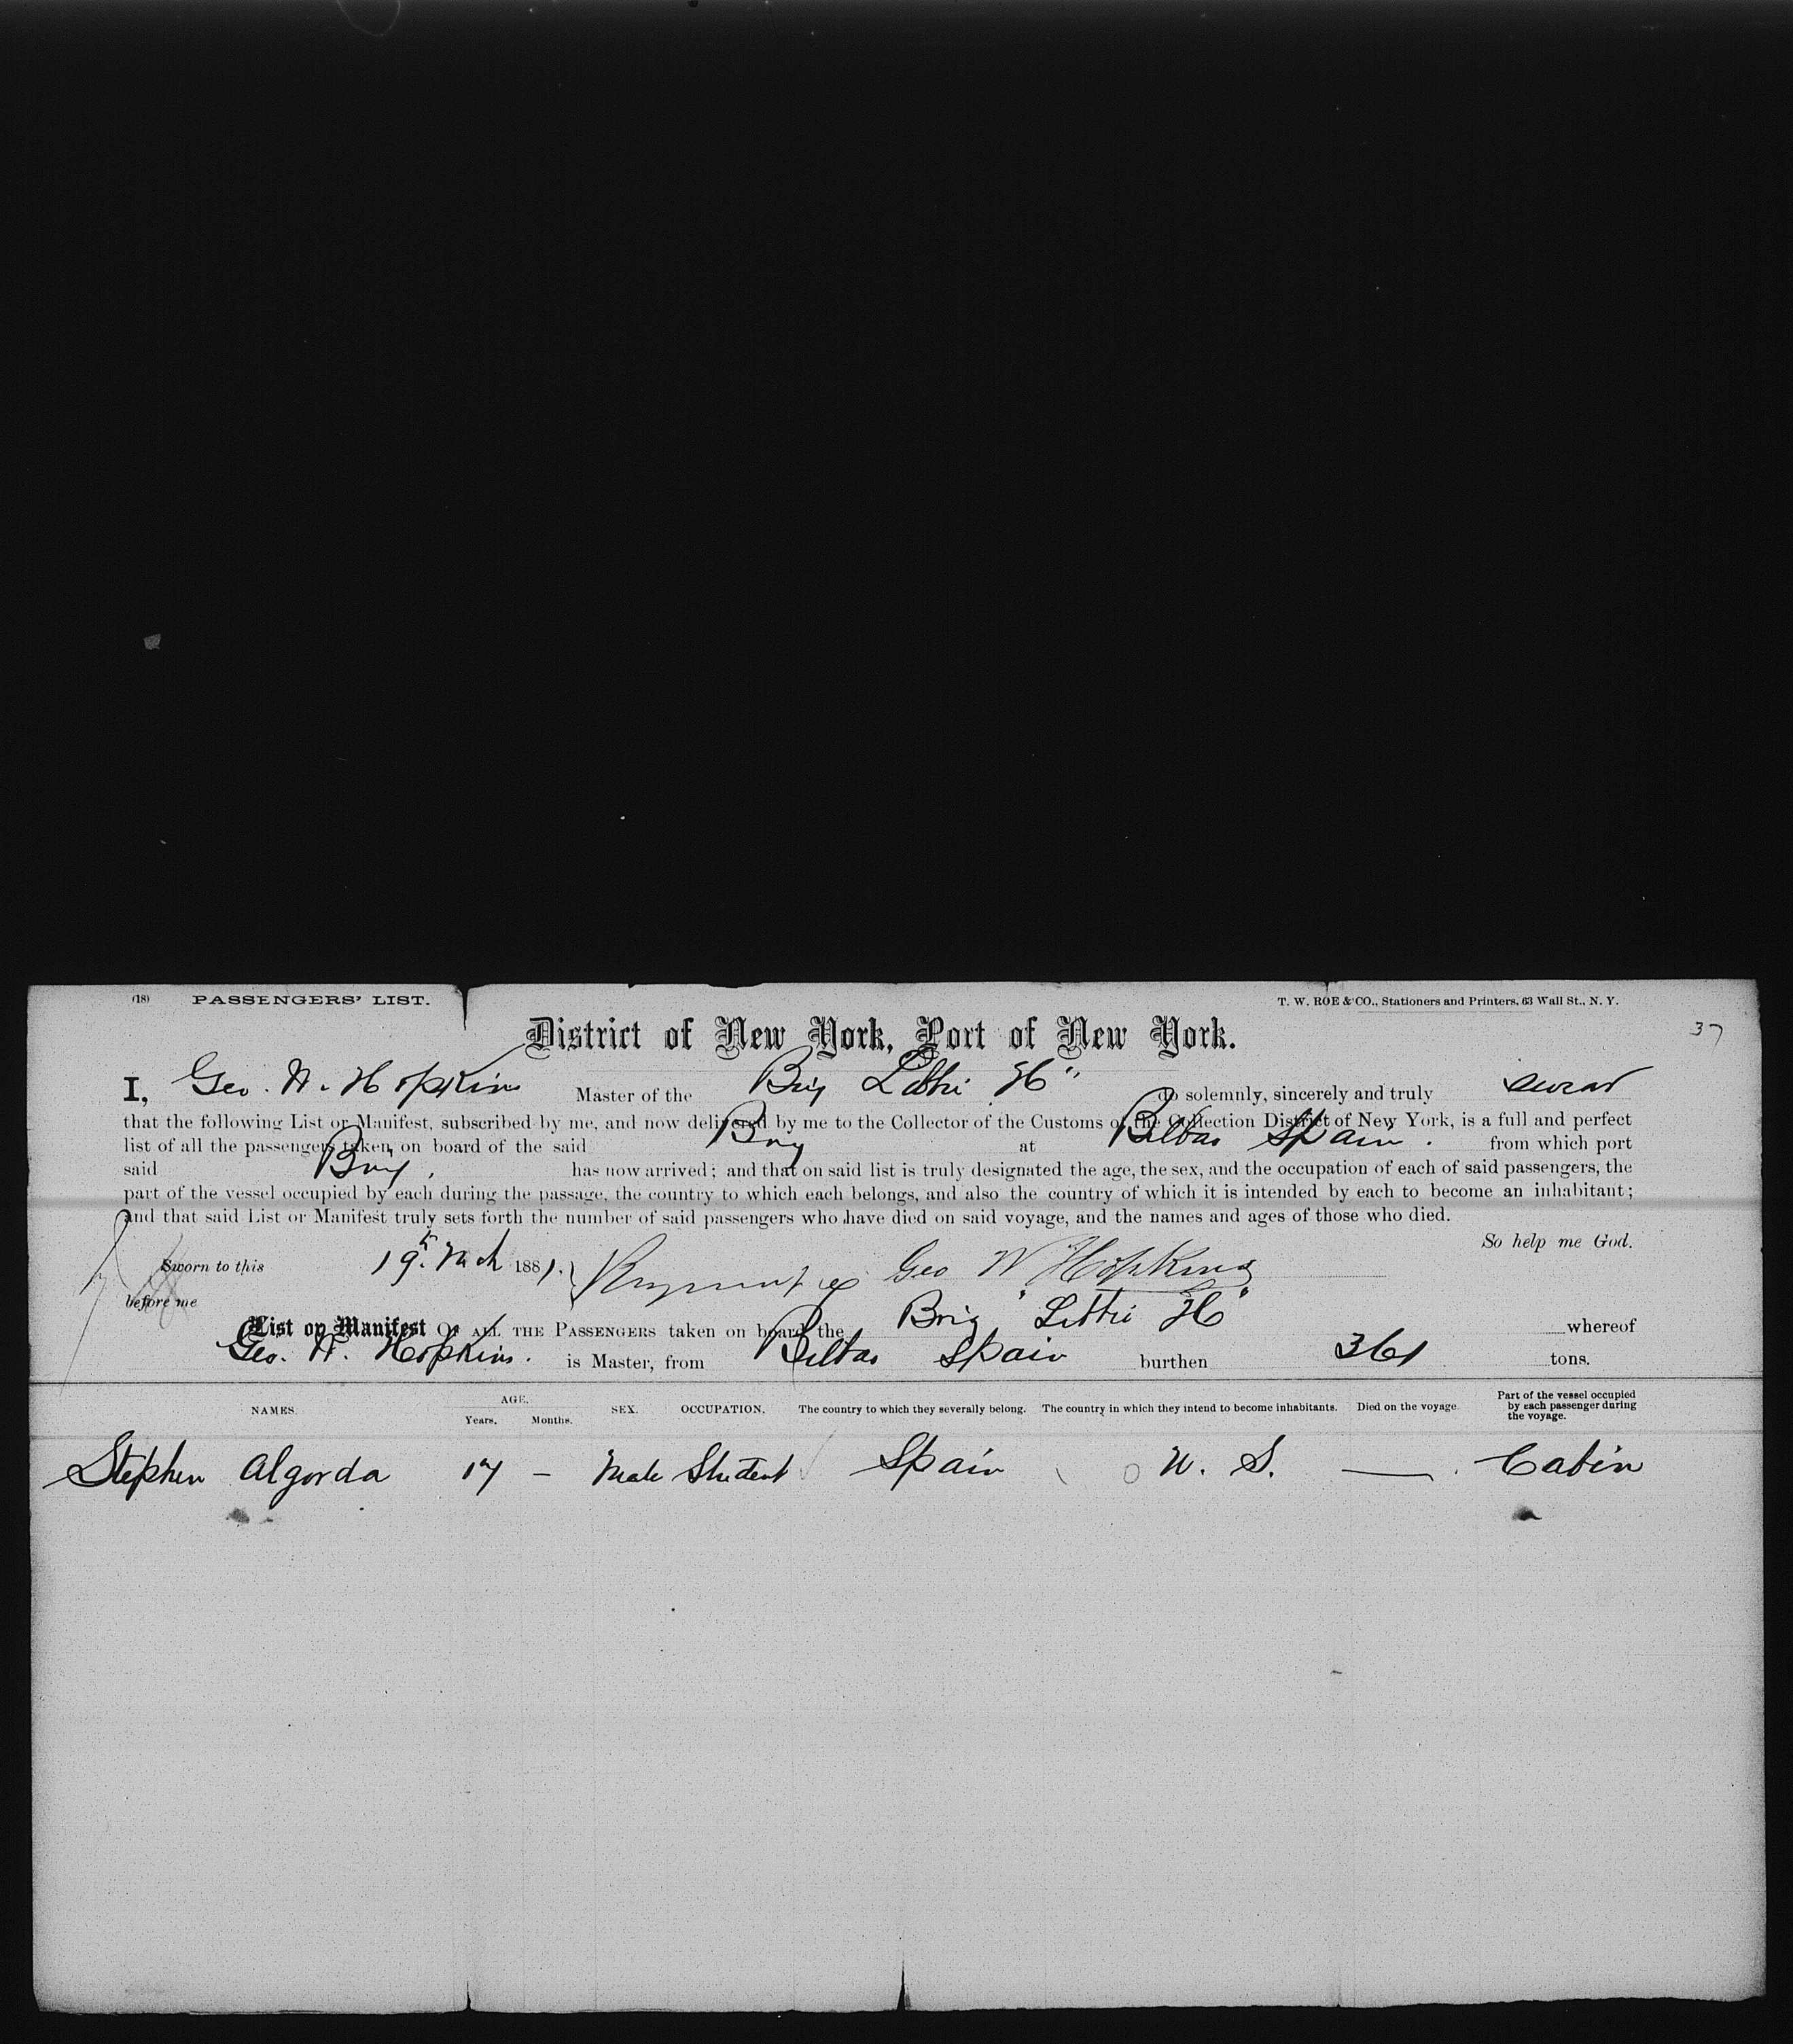 (18) PASSENGERS' LIST. T. W. ROE & CO., Stationers and Printers, 63 Wall St., N. Y.
37
District of New York, Port of New York.
I, Geo. W. Hopkins Master of the Brig Lettie H" do solemnly, sincerely and truly swear
that the following List or Manifest, subscribed by me, and now delivered by me to the Collector of the Customs of the Collection District of New York, is a full and perfect
list of all the passengers taken on board of the said Brig at Bilbao Spain. from which port
said Brig, has now arrived; and that on said list is truly designated the age, the sex, and the occupation of each of said passengers, the
part of the vessel occupied by each during the passage, the country to which each belongs, and also the country of which it is intended by each to become an inhabitant;
and that said List or Manifest truly sets forth the number of said passengers who have died on said voyage, and the names and ages of those who died.
So help me God.
Sworn to this 19th Mch 1881. Geo W Hopkins
before me
List or Manifest OF ALL THE PASSENGERS taken on board the Brig "Lettie H" whereof
Geo. W. Hopkins. is Master, from Bilbao Spain burthen 361 tons.
NAMES. AGE. Years. Months. SEX. OCCUPATION. The country to which they severally belong. The country in which they intend to become inhabitants. Died on the voyage Part of the vessel occupied by each passenger during the voyage.
Stephen Algorda 17 — Male Student Spain U. S. — Cabin